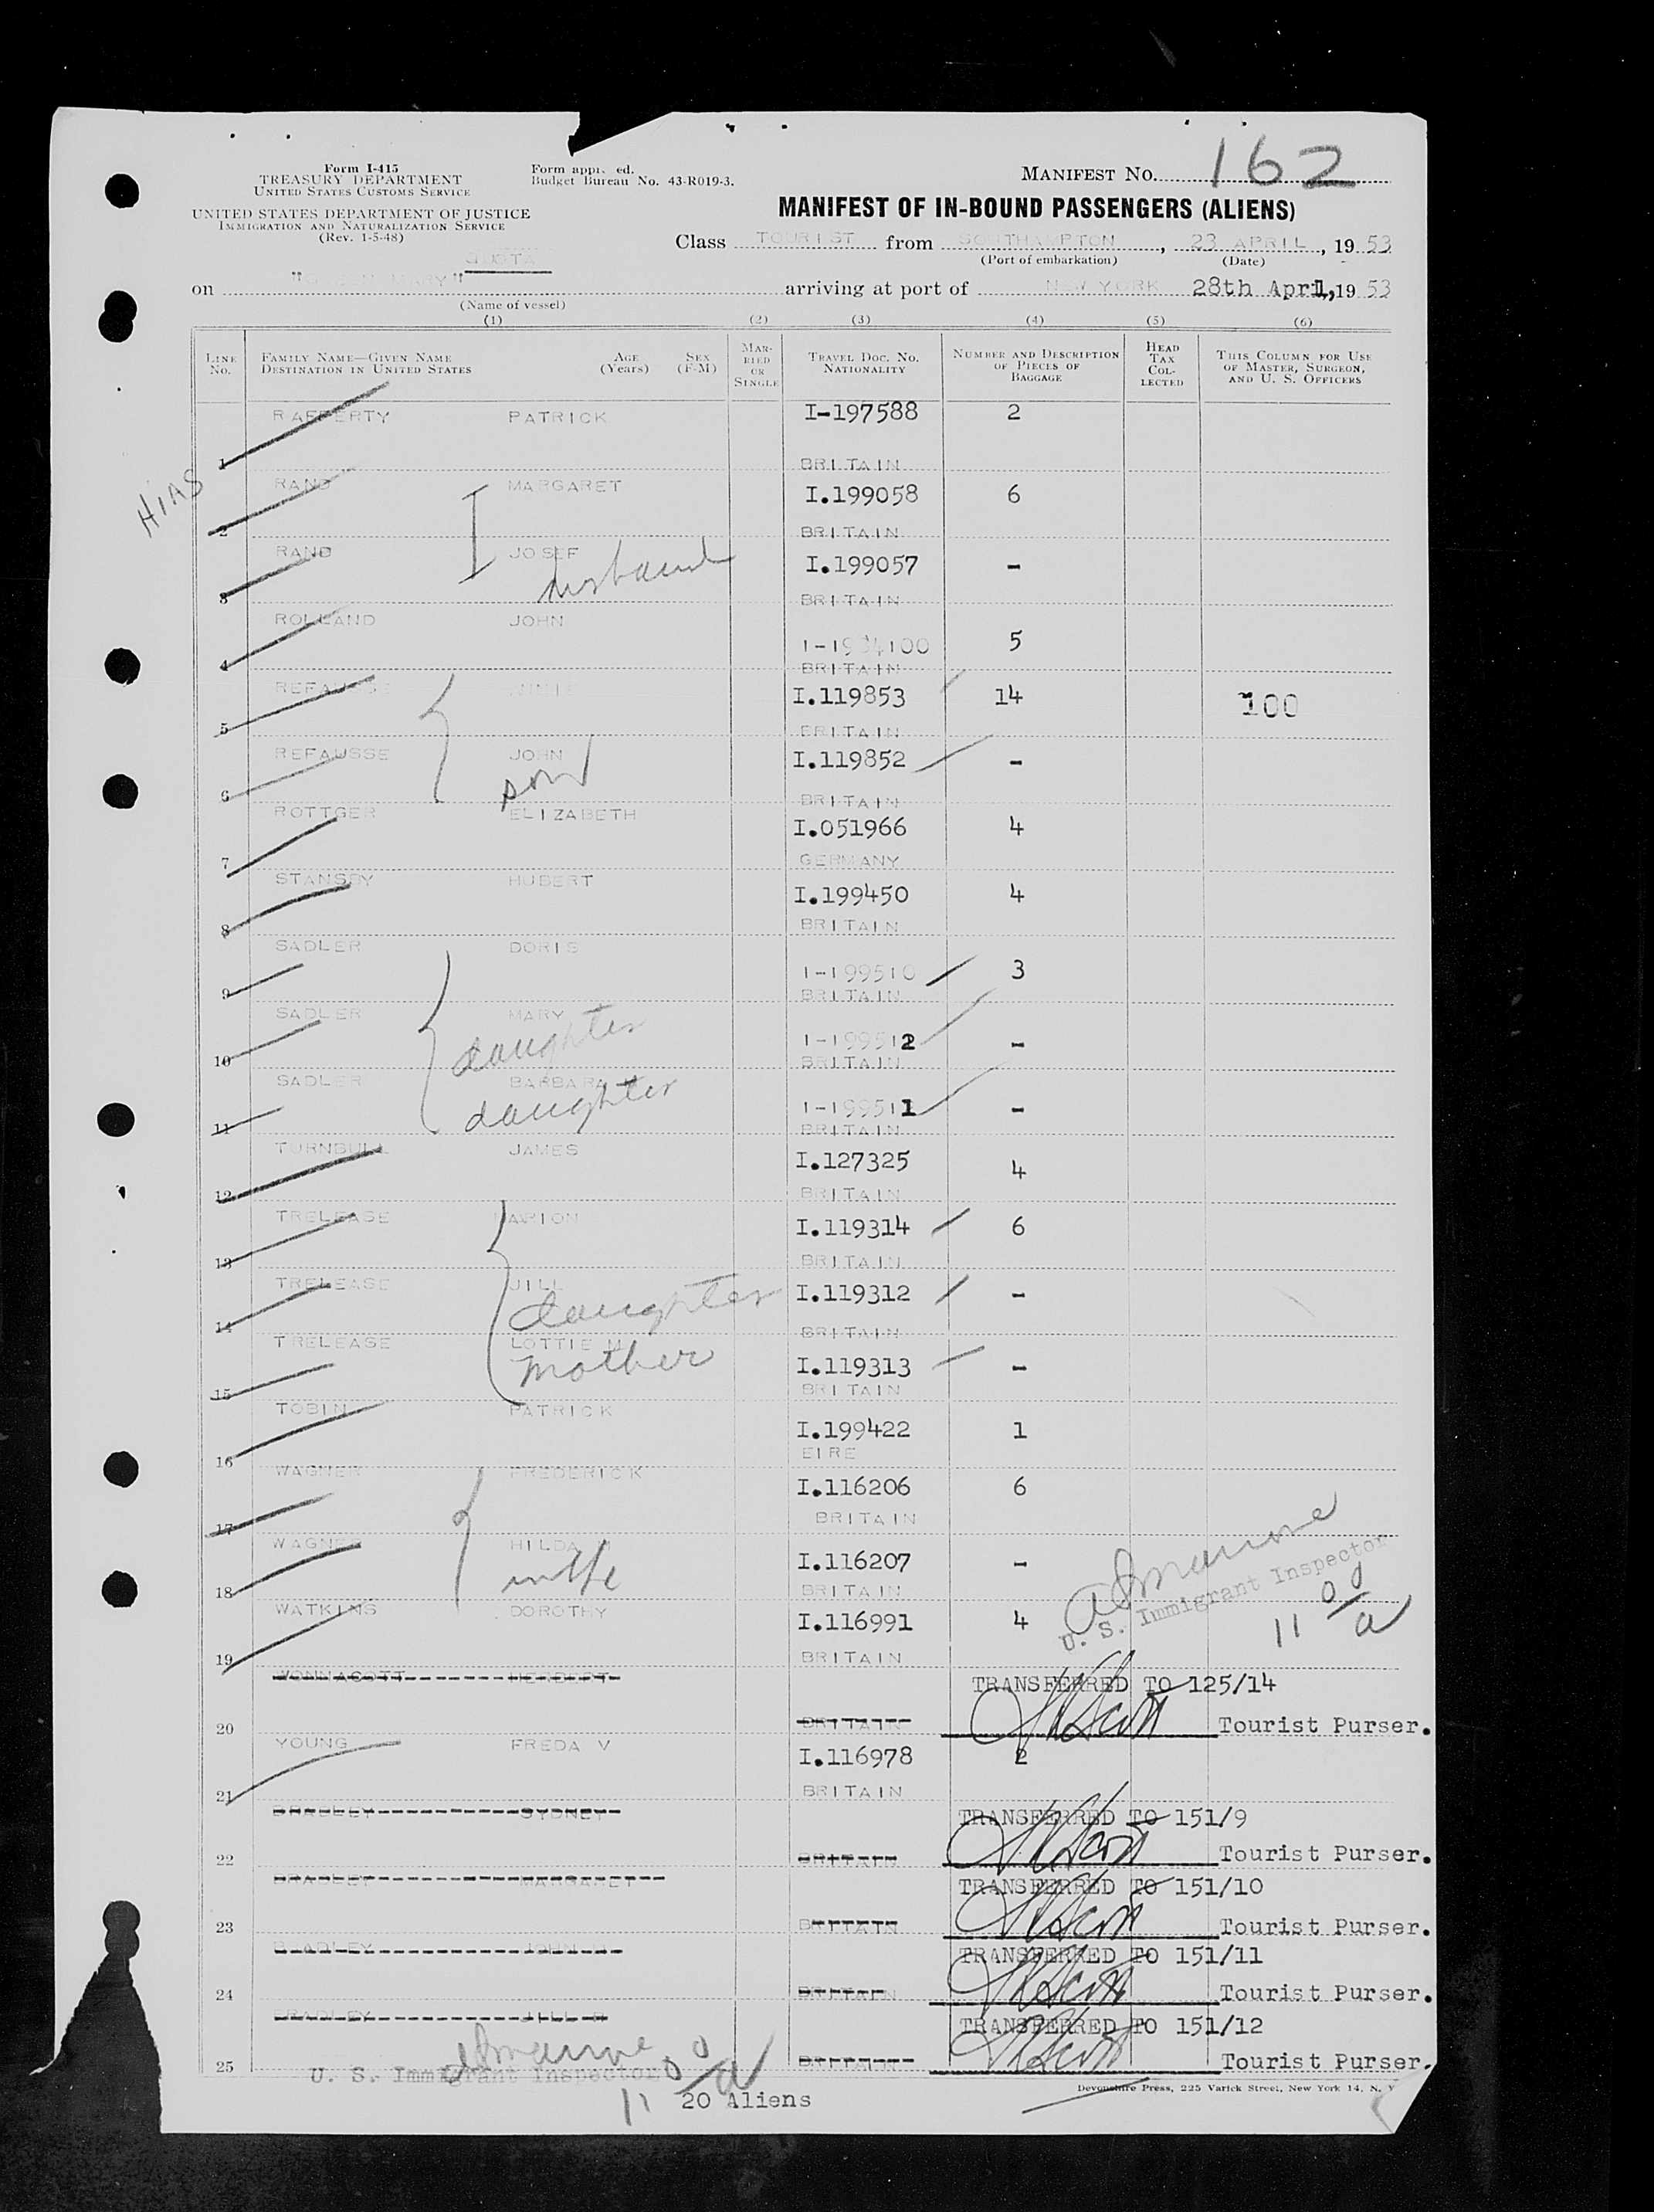 Form I-415
TREASURY DEPARTMENT
UNITED STATES CUSTOMS SERVICE
UNITED STATES DEPARTMENT OF JUSTICE
IMMIGRATION AND NATURALIZATION SERVICE
(Rev. 1-5-48)
Form appr. ed.
Budget Bureau No. 43-R019-3.
MANIFEST NO. 162
MANIFEST OF IN-BOUND PASSENGERS (ALIENS)
Class TOURIST from SOUTHAMPTON, 23 APRIL, 19 53
(Port of embarkation) (Date)
QUOTA
on "QUEEN MARY" arriving at port of NEW YORK 28th April, 19 53
(Name of vessel)
(1) (2) (3) (4) (5) (6)
LINE NO. FAMILY NAME—GIVEN NAME DESTINATION IN UNITED STATES AGE (Years) SEX (F-M) MARRIED OR SINGLE TRAVEL DOC. NO. NATIONALITY NUMBER AND DESCRIPTION OF PIECES OF BAGGAGE HEAD TAX COLLECTED THIS COLUMN FOR USE OF MASTER, SURGEON, AND U. S. OFFICERS
RAFFERTY PATRICK I-197588 2
1 BRITAIN
HIAS
RAND MARGARET I.199058 6
2 BRITAIN
RAND JOSEF I.199057 -
husband
3 BRITAIN
ROLLAND JOHN
5
4 BRITAIN
REFAUSSE I.119853 14
100
5 BRITAIN
REFAUSSE JOHN I.119852 -
son
6 BRITAIN
ROTTGER ELIZABETH I.051966 4
7 GERMANY
STANSBY HUBERT I.199450 4
8 BRITAIN
SADLER DORIS
I-199510 3
9 BRITAIN
SADLER MARY
daughter I-199512 -
10 BRITAIN
SADLER BARBARA
daughter I-199511 -
11 BRITAIN
TURNBULL JAMES I.127325 4
12 BRITAIN
TRELEASE MARION I.119314 6
13 BRITAIN
TRELEASE JILL I.119312 -
daughter
14 BRITAIN
TRELEASE LOTTIE M I.119313 -
mother
15 BRITAIN
TOBIN PATRICK I.199422 1
16 EIRE
WAGNER FREDERICK I.116206 6
17 BRITAIN
WAGNER HILDA I.116207 -
wife
18 BRITAIN
U. S. Immigrant Inspector
11 00/a
WATKINS DOROTHY I.116991 4
19 BRITAIN
WONNACOTT HERBERT TRANSFERRED TO 125/14
20 BRITAIN Tourist Purser.
YOUNG FREDA V I.116978 2
21 BRITAIN
BRADLEY SYDNEY TRANSFERRED TO 151/9
22 BRITAIN Tourist Purser.
BRADLEY MARGARET TRANSFERRED TO 151/10
23 BRITAIN Tourist Purser.
BRADLEY JOHN TRANSFERRED TO 151/11
24 BRITAIN Tourist Purser.
BRADLEY JILL TRANSFERRED TO 151/12
25 BRITAIN Tourist Purser.
U. S. Immigrant Inspector
11 00/a
20 Aliens
Devonshire Press, 225 Varick Street, New York 14, N. Y